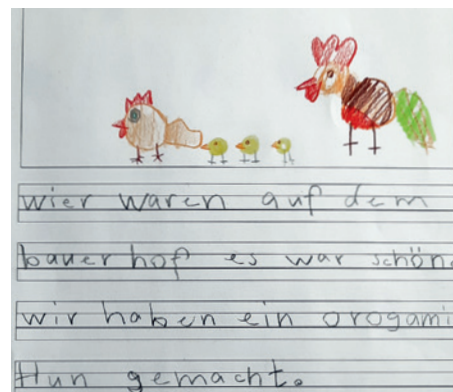 wier waren auf dem
bauer hof es war schön.
wir haben ein orogami
Hun gemacht.